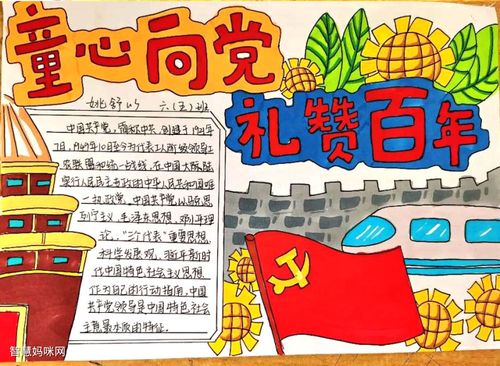 童心向党
礼赞百年
姚舒 六(五)班
中国共产党，简称中共，创建于1921年
7月，1949年10月至今为代表工人阶级领导工
农联盟和统一战线，在中国大陆
实行人民民主专政的中华人民共和国唯
一执政党。中国共产党以马克思
列宁主义、毛泽东思想、邓小平理
论、"三个代表"重要思想、
科学发展观、习近平新时
代中国特色社会主义思想
作为自己的行动指南，中国
共产党领导是中国特色社会
主义最本质的特征。
智慧妈咪网